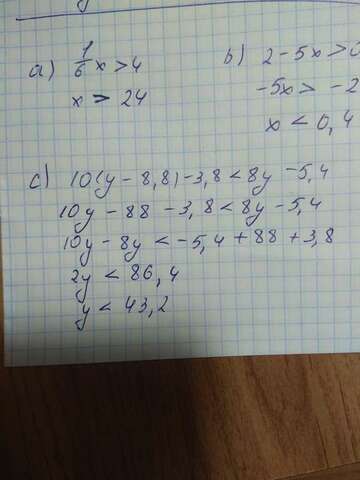 a) 1/6 x > 4
x > 24
b) 2 - 5x > 0
-5x > -2
x < 0,4
c) 10(y - 8,8) - 3,8 < 8y - 5,4
10y - 88 - 3,8 < 8y - 5,4
10y - 8y < -5,4 + 88 + 3,8
2y < 86,4
y < 43,2